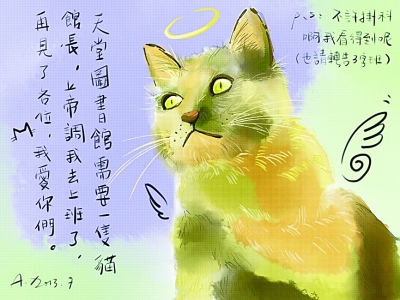 天堂圖書館需要一隻貓
館長，上帝調我去上班了，
再見了各位，我愛你們。
M
p.s: 不許掛科
啊我看得到呢
(也請轉告39班)
A. 2013. 7